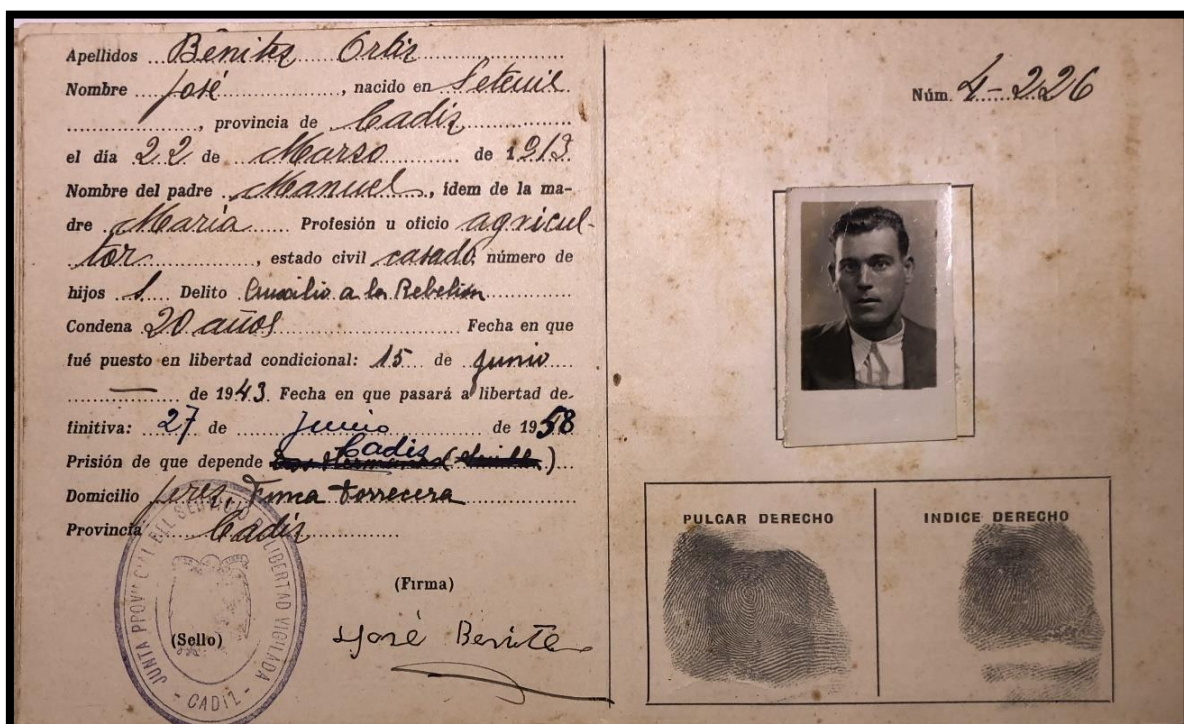 Apellidos Benitez Ortiz
Nombre José, nacido en Setenil
, provincia de Cadiz
el día 22 de Marzo de 1913
Nombre del padre Manuel, idem de la ma-
dre Maria Profesión u oficio agricul-
tor, estado civil casado, número de
hijos Delito Auxilio a la Rebelion
Condena 20 años Fecha en que
fué puesto en libertad condicional: 15 de Junio
— de 1943. Fecha en que pasará a libertad de-
finitiva: 27 de Junio de 1958
Cadiz
Prisión de que depende Dos Hermanas (Sevilla)
Domicilio Jerez, Finca Torrecera
Provincia Cadiz
(Firma)
(Sello)
José Benite
JUNTA PROVINCIAL DEL SERVICIO DE LIBERTAD VIGILADA
- CADIZ -
Núm. 4-226
PULGAR DERECHO
INDICE DERECHO